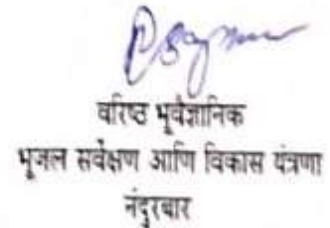 वरिष्ठ भूवैज्ञानिक
भूजल सर्वेक्षण आणि विकास यंत्रणा
नंदुरबार